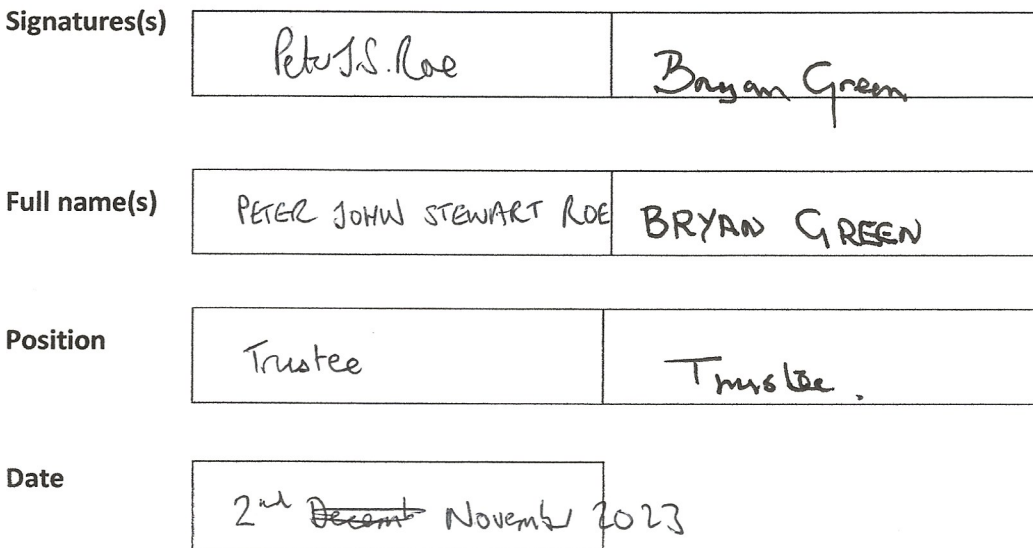 Signatures(s) Peter J.S. Roe Bryan Green
Full name(s) PETER JOHN STEWART ROE BRYAN GREEN
Position Trustee Trustee.
Date 2nd Decemb November 2023